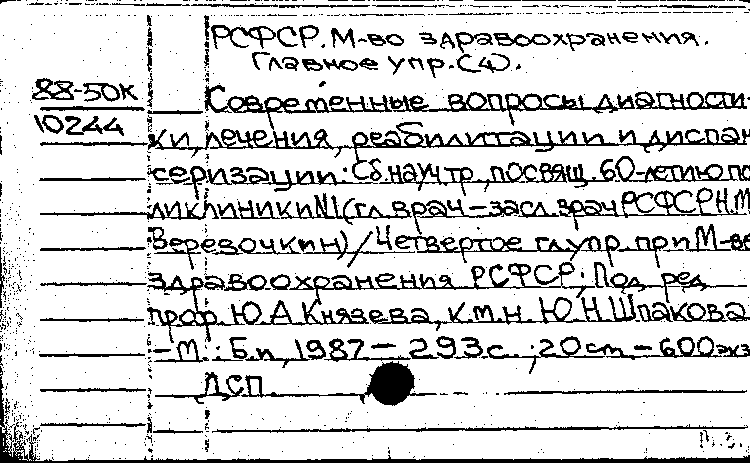 РСФСР. М-во здравоохранения.
Главное упр. (4).
88-50к
10244
Современные вопросы диагности-
ки, лечения, реабилитации и диспан-
серизации: Сб. науч. тр., посвящ. 60-летию по-
ликлиники N1 (гл. врач – засл. врач РСФСР Н.М.
Верезочкин) / Четвертое гл. упр. при М-ве
здравоохранения РСФСР; Под ред.
проф. Ю.А. Князева, к.м.н. Ю.Н. Шпакова
– М.: Б.и., 1987 – 293 с.; 20 см. – 600 экз.
ДСП.